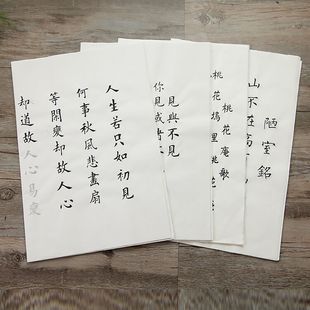 人生若只如初見
何事秋風悲畫扇
等閑變却故人心
却道故人心易變
見與不見
你見或
桃花庵歌
桃花塢里桃花
陋室銘
山不在高